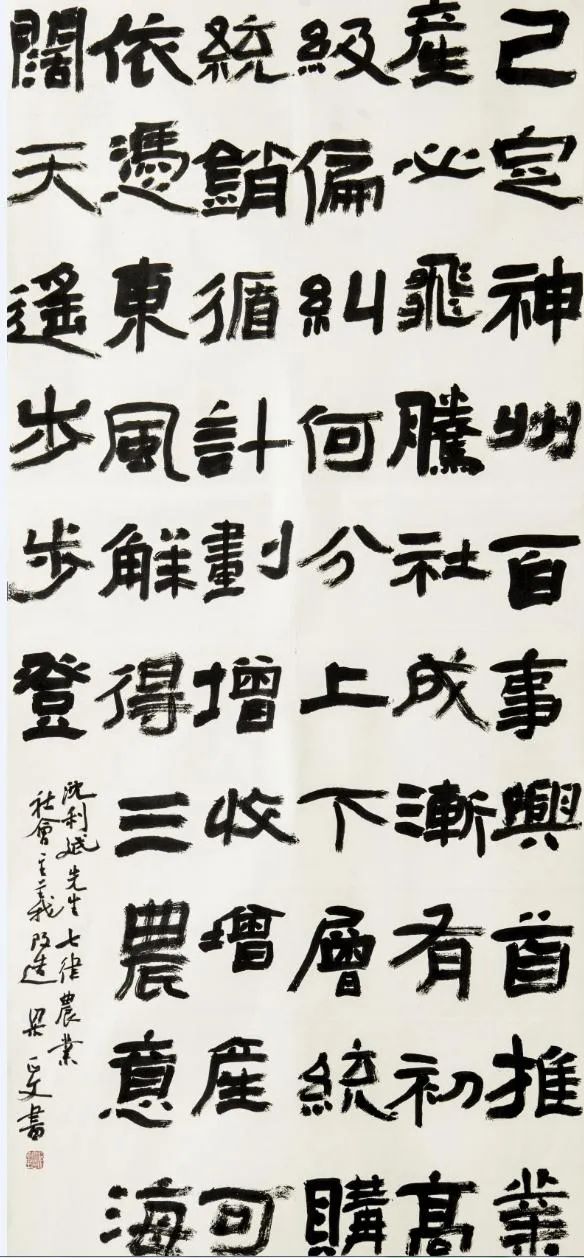 已定神州百事興首推業
產必飛騰社成漸有初高
級偏糾何分上下層統購
統銷循計劃增收增產可
依憑東風解得三農意海
闊天遙步步登
沈利斌先生七律農業
社會主義改造 文書